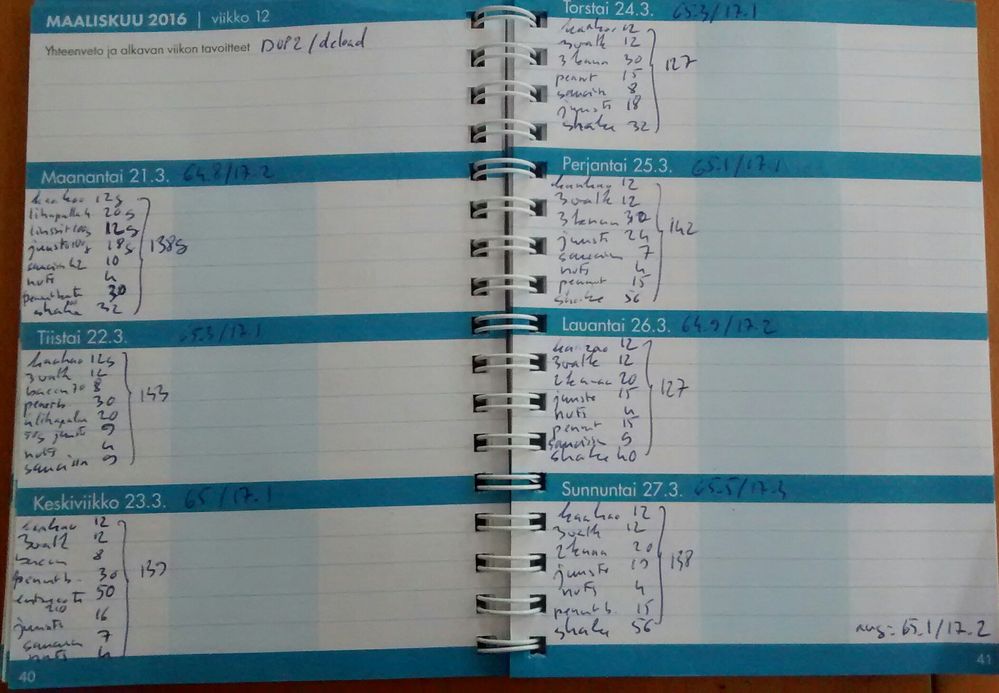 MAALISKUU 2016 | viikko 12
Yhteenveto ja alkavan viikon tavoitteet DUP2/deload
Maanantai 21.3. 64.8/17.2
kaakao 12g
lihapullat 20g
linssit 100g 12g
juusto 100g 18g
10
nuts 4
30
shake 32
138g
Tiistai 22.3. 65.3/17.1
kaakao 12g
3 valk 12
bacon 70 8
penutb 30
20
50g juusto 9
nuts 4
9
143
Keskiviikko 23.3. 65/17.1
kaakao 12
3 valk 12
bacon 8
penut b. 30
50
210
juusto 16
7
nuts 4
139
40
Torstai 24.3. 65.3/17.1
kaakao 12
3 valk 12
3 kana 30
penut 15
8
juusto 18
shake 32
127
Perjantai 25.3. 65.1/17.1
kaakao 12
3 valk 12
3 kanan 30
juusto 24
7
nuts 4
penut 15
shake 56
142
Lauantai 26.3. 64.9/17.2
kaakao 12
3 valk 12
2 kanaa 20
juusto 15
nuts 4
penut 15
9
shake 40
127
Sunnuntai 27.3. 65.5/17.3
kaakao 12
3 valk 12
2 kana 20
juusto 19
nuts 4
penut b. 15
shake 56
138
avg = 65.1/17.2
41